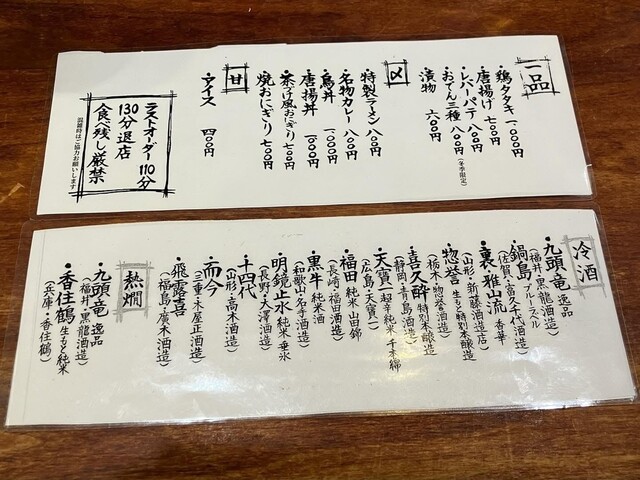 一品
・鶏タタキ 一〇〇〇円
・唐揚げ 七〇〇円
・レバーパテ 八〇〇円
・おでん三種 八〇〇円(冬季限定)
・漬物 六〇〇円
〆
・特製ラーメン 八〇〇円
・名物カレー 八〇〇円
・鳥丼 一〇〇〇円
・唐揚丼 一〇〇〇円
・茶づけ風おにぎり 七〇〇円
・焼おにぎり 七〇〇円
甘
・アイス 四〇〇円
ラストオーダー 110分
130分退店
食べ残し厳禁
混雑時はご協力お願いします
冷酒
・九頭竜 逸品
(福井・黒龍酒造)
・鍋島 ブルーラベル
(佐賀・富久千代酒造)
・裏雅山流 香華
(山形・新藤酒造店)
・惣誉 生もと特別本醸造
(栃木・惣誉酒造)
・喜久酔 特別本醸造
(静岡・青島酒造)
・天寶一 超辛純米 千本錦
(広島・天寶一)
・福田 純米 山田錦
(長崎・福田酒造)
・黒牛 純米酒
(和歌山・名手酒造)
・明鏡止水 純米 垂氷
(長野・大澤酒造)
・十四代
(山形・高木酒造)
・而今
(三重・木屋正酒造)
・飛露喜
(福島・廣木酒造)
熱燗
・九頭竜 逸品
(福井・黒龍酒造)
・香住鶴 生もと純米
(兵庫・香住鶴)